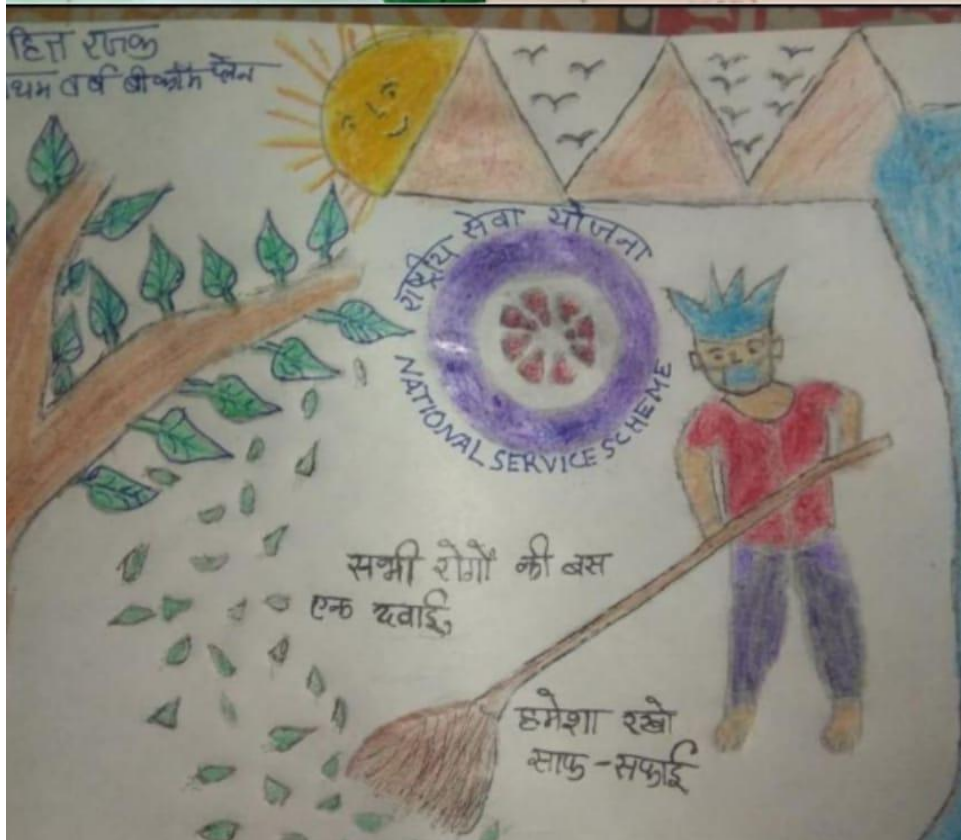 हित रजक
थम वर्ष बी कॉम प्लेन
राष्ट्रीय सेवा योजना
NATIONAL SERVICE SCHEME
सभी रोगों की बस
एक दवाई,
हमेशा रखो
साफ-सफाई